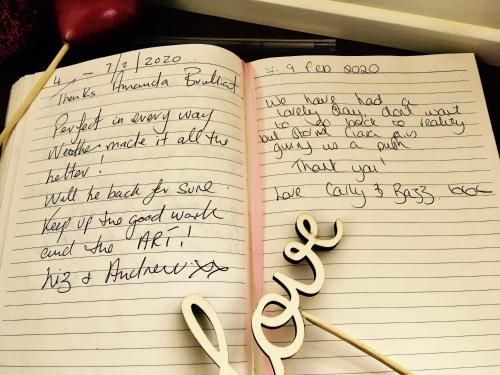 4 - 7/2/2020
Thanks Amanda Brilliant
Perfect in every way
Weather made it all the
better!
Will be back for sure.
Keep up the good work
and the ART!
Liz & Andrew xx
7 - 9 Feb 2020
We have had a
lovely stay, dont want
to go back to reality
but storm Ciara is
giving us a push
Thank you!
Love Carly & Bazz. xoxo
love